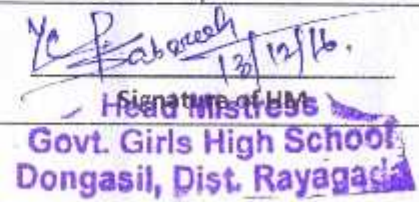 13/12/16.
Signature of HM
Head Mistress
Govt. Girls High School
Dongasil, Dist. Rayagada